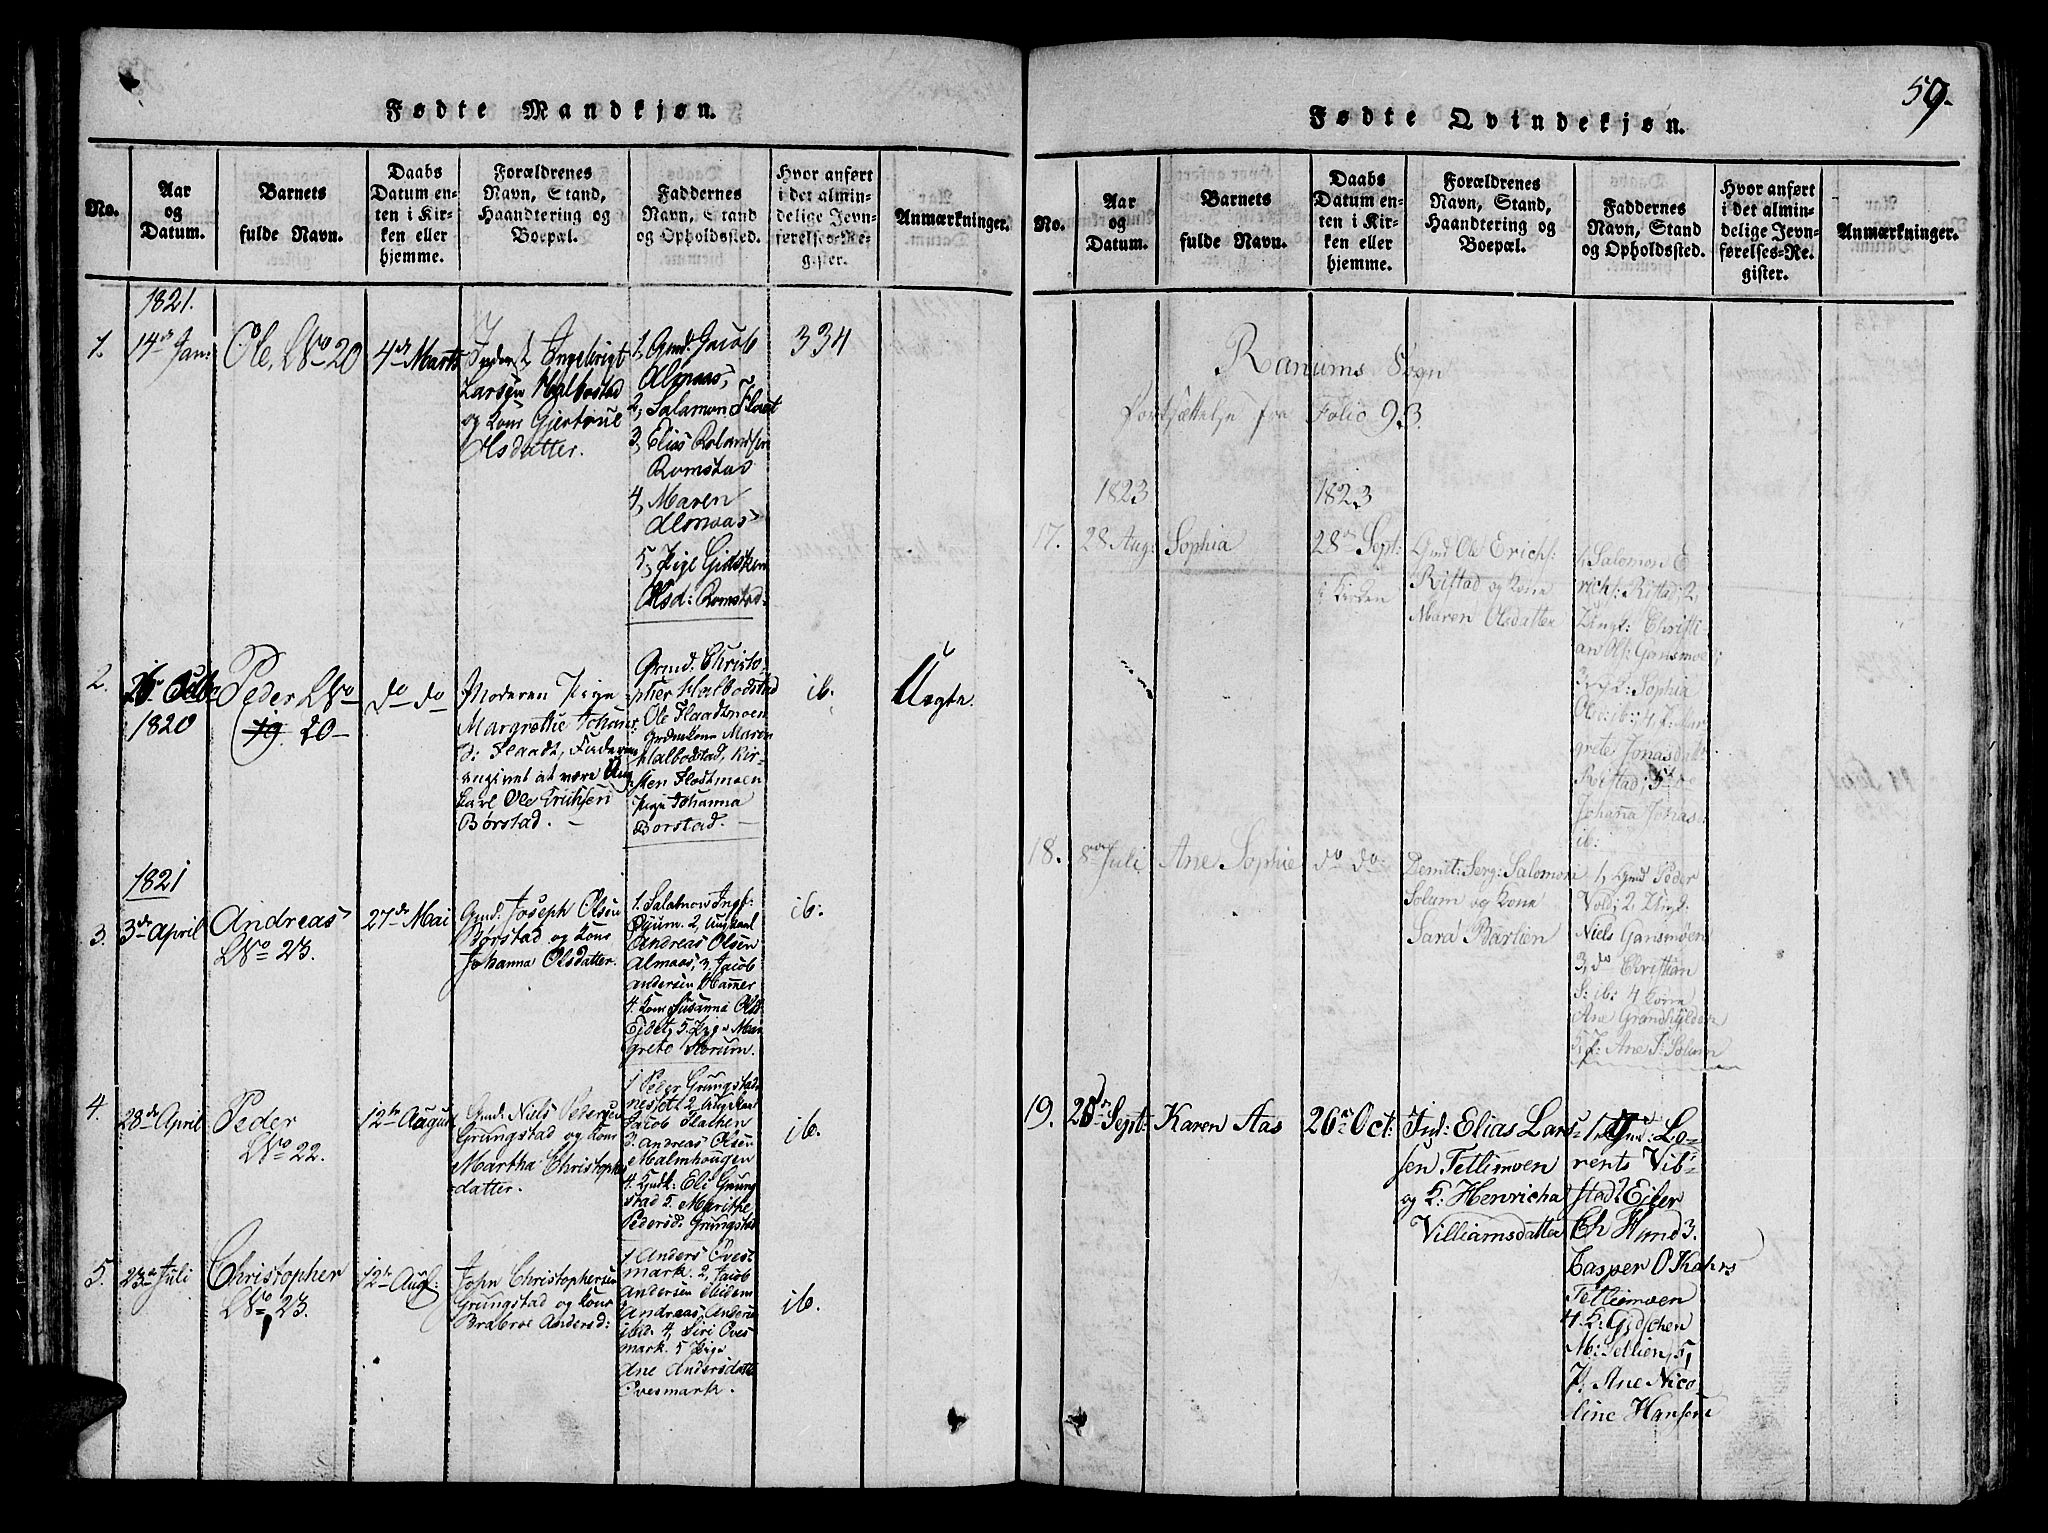 59.
Fødte Mandkjøn.
No.
Aar
og
Datum.
Barnets
fulde Navn.
Daabs
Datum en-
ten i Kir-
ken eller
hjemme.
Forældrenes
Navn, Stand,
Haandtering og
Boepæl.
Faddernes
Navn, Stand
og Opholdssted.
Hvor anført
i det almin-
delige Jevn-
førelses-Re-
gister.
Anmærkninger.
1821.
1.
14de Jan:
Ole, LNo 20
4de Marts
Inderst, Ingebrigt
Larsen Halbostad
og Kone Gjertrue
Olsdatter.
1, Gmd. Jacob
Almaas,
2, Salamon Flaat
3, Elias Rolandsen
Romstad
4, Maren
Almaas
5, Pige Gidsken
Olsd: Romstad.
334
2.
1820
Peder LNo
19. 20
do do
Moderen Pige
Margrethe Johans
d: Flaadt, Faderen
angivet at være Ung
karl Ole Erichsen
Børstad.
Grmd. Christo-
pher Halbodstad
Ole Flaadtmoen
Maren
Halbodstad, Kir-
sten Flodtmoen
Pige Johanna
Borstad.
ib.
Uægte.
1821
3.
3de April
Andreas
LNo 23.
27de Mai
Gmd: Joseph Olsen
Børstad og Kone
Johanna Olsdatter.
1. Salamon Ingf:
Øyum. 2, Ungkaal
Andreas Olsen
Almaas, 3, Jacob
Andersen Hammer
4. Kone Susanna Olsd.
Eidet, 5. Pige Mar
grete Skorum.
ib.
4.
28de April
Peder
LNo 22.
12te August
Gmd: Niels Petersen
Grungstad og Kone
Martha Christophers
datter.
1 Peder Grungstad
2 Ungkarl
Jacob Flachen
3. Andreas Olsen
Malmhougen
4. Gmdk: Eli Grung
stad 5. Marithe
Pedersd: Grungstad
ib.
5.
23de Juli
Christopher
LNo 23.
12te Aug.
John Christophersen
Grungstad og Kone
Brabroe Andersd:
1 Anders Øves
mark. 2, Jacob
Andersen ibidem
Andreas Anders
ibid. 4, Siri Øves
mark. 5 Pige
Ane Andersdatter
Øvesmark.
ib.
Fødte Qvindekjøn.
No.
Aar
og
Datum.
Barnets
fulde Navn.
Daabs
Datum en-
ten i Kir-
ken eller
hjemme.
Forældrenes
Navn, Stand,
Haandtering og
Boepæl.
Faddernes
Navn, Stand
og Opholdssted.
Hvor anført
i det almin-
delige Jevn-
førelses-Re-
gister.
Anmærkninger.
Ranums Sogn
fortsættelse fra Folio 93
1823
1823
17.
28 Aug:
Sophia
28de Sept:
i Kirken
Gmd Ole Erichs:
Ristad og Kone
Maren Olsdatter
1, Salomon E
richs: Ristad; 2,
Ungk: Christi-
an Ols: Gansmoe;
3, Sophia
Ols: ib: 4, P. Mar
grete Jonasdatt
Ristad; 5
Johana Jonas
ib:
18.
8de Juli
Ane Sophie
do do:
Demit: Serg: Salomon
Solum og Kone
Sara Barlien
1, Gmd Peder
Vold; 2 Ungk:
Niels Gansmoen
3, do Christian
S: ib: 4 Kone
Ane Grandhylden
5, P: Ane J: Solum
19.
Sept:
Karen Aas
26de Oct:
Ind: Elias Lar-
sen Tetlimoen
og K: Henricha
Villiamsdatter
1, Gmd: Lo-
rents Vib-
stad 2 Eiler
Ch Hund 3.
Casper O Kahrs
Tetliemoen
4. K: Gidschen
M: Tetlien, 5,
P, Ane Nico-
line Hansen